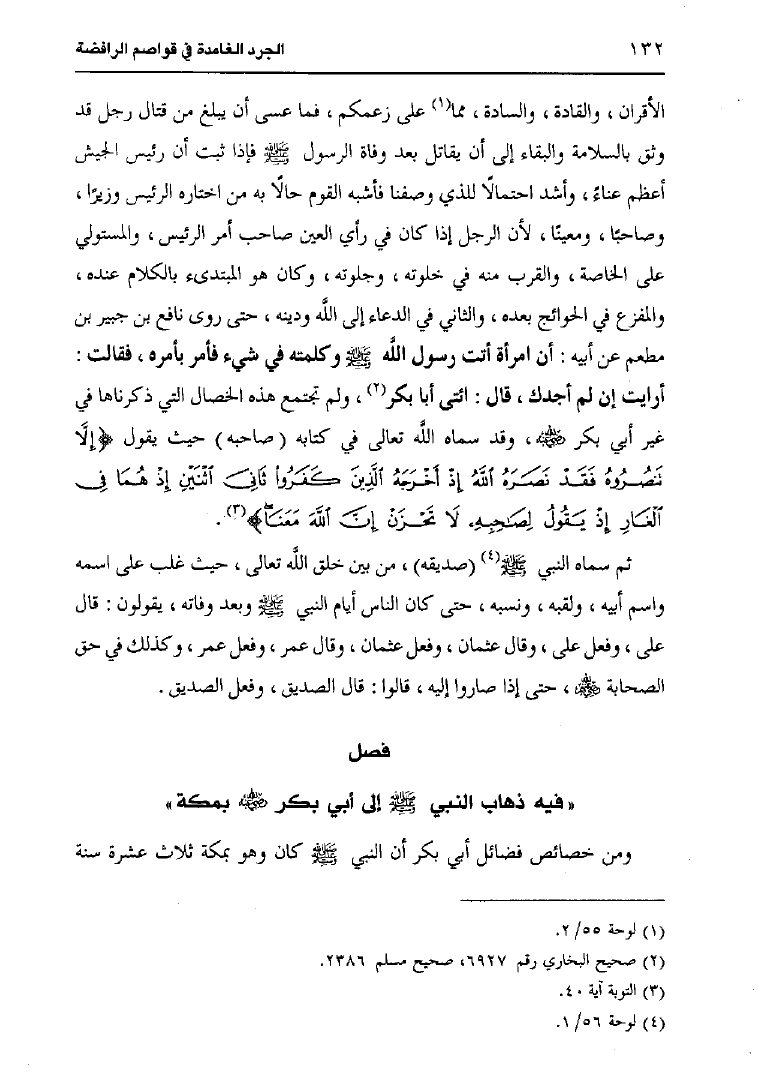 ١٣٢ الجرد الغامدة في قواصم الرافضة
الأقران ، والقادة ، والسادة ، مما(١) على زعمكم ، فما عسى أن يبلغ من قتال رجل قد
وثق بالسلامة والبقاء إلى أن يقاتل بعد وفاة الرسول ﷺ فإذا ثبت أن رئيس الجيش
أعظم عناءً ، وأشد احتمالًا للذي وصفنا فأشبه القوم حالًا به من اختاره الرئيس وزيرًا ،
وصاحبًا ، ومعينًا ، لأن الرجل إذا كان في رأي العين صاحب أمر الرئيس ، والمستولي
على الخاصة ، والقرب منه في خلوته ، وجلوته ، وكان هو المبتدىء بالكلام عنده ،
والمفزع في الحوائج بعده ، والثاني في الدعاء إلى اللَّه ودينه ، حتى روى نافع بن جبير بن
مطعم عن أبيه : أن امرأة أتت رسول اللَّه ﷺ وكلمته في شيء فأمر بأمره ، فقالت :
أرايت إن لم أجدك ، قال : ائتى أبا بكر(٢) ، ولم تجتمع هذه الخصال التي ذكرناها في
غير أبي بكر رضي الله عنه ، وقد سماه اللَّه تعالى في كتابه ( صاحبه ) حيث يقول ﴿إِلَّا
تَنصُرُوهُ فَقَدْ نَصَرَهُ اللَّهُ إِذْ أَخْرَجَهُ الَّذِينَ كَفَرُوا ثَانِيَ اثْنَيْنِ إِذْ هُمَا فِي
الْغَارِ إِذْ يَقُولُ لِصَاحِبِهِ لَا تَحْزَنْ إِنَّ اللَّهَ مَعَنَا﴾(٣) .
ثم سماه النبي ﷺ(٤) (صديقه) ، من بين خلق اللَّه تعالى ، حيث غلب على اسمه
واسم أبيه ، ولقبه ، ونسبه ، حتى كان الناس أيام النبي ﷺ وبعد وفاته ، يقولون : قال
على ، وفعل على ، وقال عثمان ، وفعل عثمان ، وقال عمر ، وفعل عمر ، وكذلك في حق
الصحابة رضي الله عنهم ، حتى إذا صاروا إليه ، قالوا : قال الصديق ، وفعل الصديق .
فصل
« فيه ذهاب النبي ﷺ إلى أبي بكر رضي الله عنه بمكة »
ومن خصائص فضائل أبي بكر أن النبي ﷺ كان وهو بمكة ثلاث عشرة سنة
(١) لوحة ٢/٥٥.
(٢) صحيح البخاري رقم ٦٩٢٧، صحيح مسلم ٢٣٨٦.
(٣) التوبة آية ٤٠.
(٤) لوحة ١/٥٦.